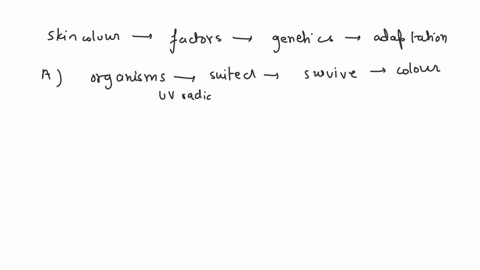 skin colour → factors → genetics → adaptation
A) organisms → suited → survive → colour
UV radic